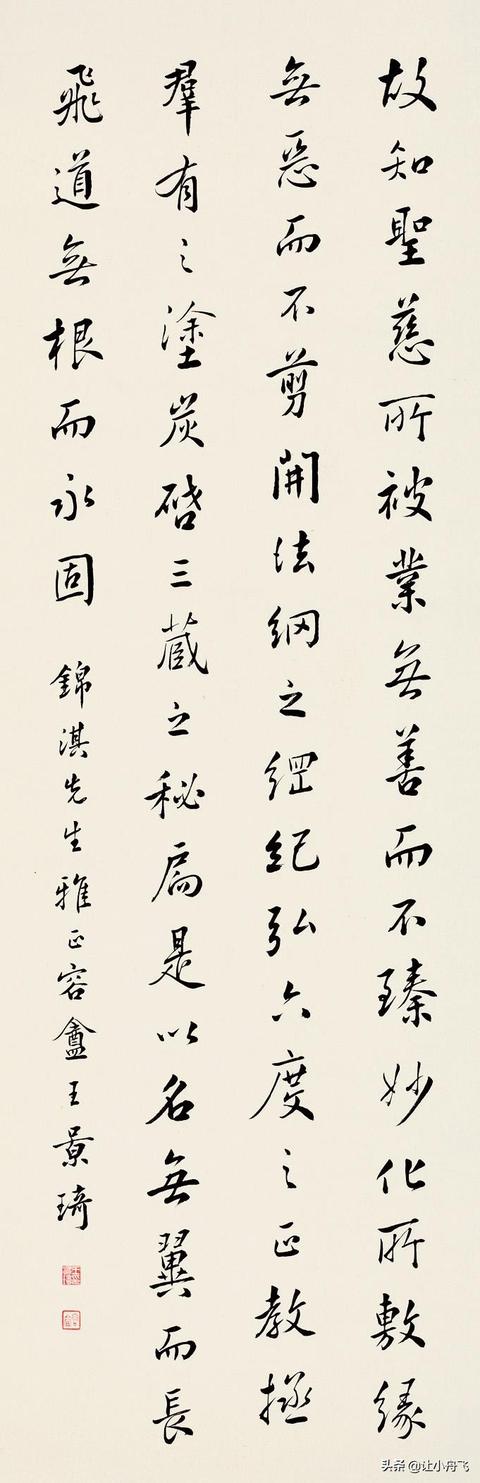 故知聖慈所被業無善而不臻妙化所敷緣
無惡而不剪開法網之綱紀弘六度之正教拯
羣有之塗炭啓三藏之秘扃是以名無翼而長
飛道無根而永固
錦淇先生雅正容盦王景琦
头条@让小舟飞